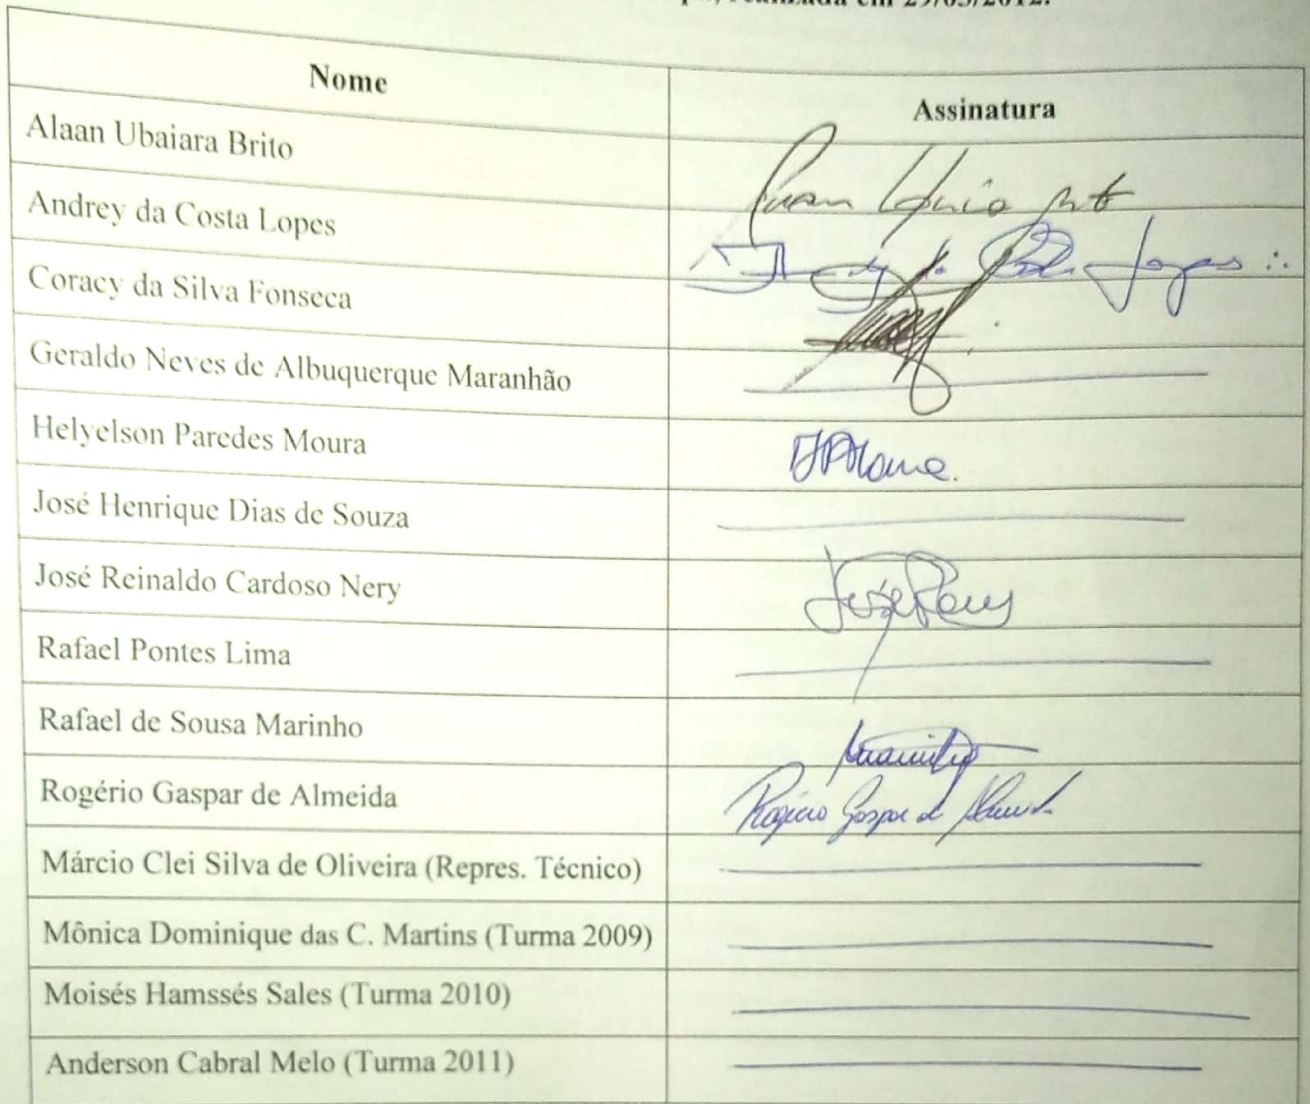 realizada em 29/03/2012.
Nome Assinatura
Alaan Ubaiara Brito
Andrey da Costa Lopes
Coracy da Silva Fonseca
Geraldo Neves de Albuquerque Maranhão
Helyelson Paredes Moura
José Henrique Dias de Souza
José Reinaldo Cardoso Nery
Rafael Pontes Lima
Rafael de Sousa Marinho
Rogério Gaspar de Almeida Rogério Gaspar de Almeida
Márcio Clei Silva de Oliveira (Repres. Técnico)
Mônica Dominique das C. Martins (Turma 2009)
Moisés Hamssés Sales (Turma 2010)
Anderson Cabral Melo (Turma 2011)